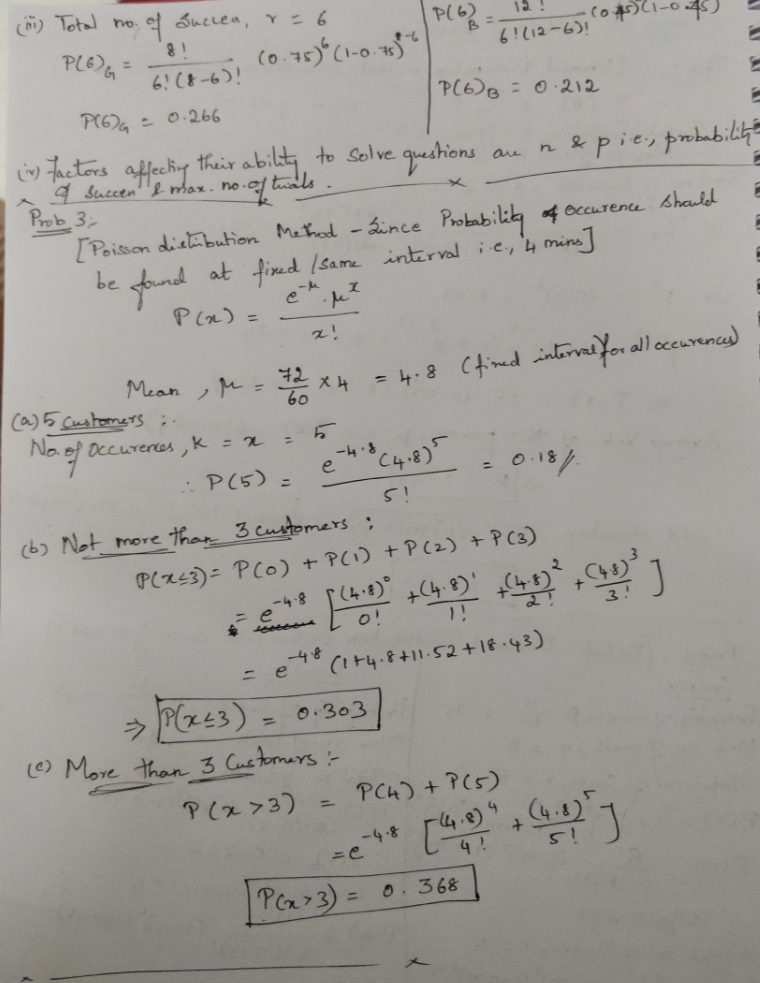 (iii) Total no. of Succes, r = 6
P(6)G = 8! / 6!(8-6)! (0.75)^6 (1-0.75)^8-6
P(6)G = 0.266
P(6)B = 12! / 6!(12-6)! (0.45)(1-0.45)
P(6)B = 0.212
(iv) Factors affecting their ability to solve questions are n & p i.e., probability
of succes & max. no. of trials.
Prob 3:-
[Poisson distribution Method - Since Probability of occurence should
be found at fixed/same interval i.e., 4 mins]
P(x) = e^-μ . μ^x / x!
Mean, μ = 72/60 × 4 = 4.8 (fixed interval for all occurences)
(a) 5 customers :-
No. of occurences, K = x = 5
∴ P(5) = e^-4.8 (4.8)^5 / 5! = 0.18//
(b) Not more than 3 customers :
P(x≤3) = P(0) + P(1) + P(2) + P(3)
= e^-4.8 [(4.8)^0/0! + (4.8)^1/1! + (4.8)^2/2! + (4.8)^3/3!]
= e^-4.8 (1+4.8+11.52+18.43)
⇒ P(x≤3) = 0.303
(c) More than 3 Customers :-
P(x>3) = P(4) + P(5)
= e^-4.8 [(4.8)^4/4! + (4.8)^5/5!]
P(x>3) = 0.368